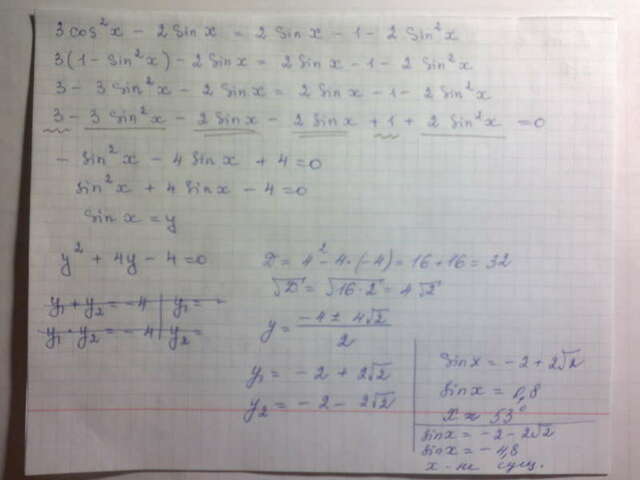 3cos²x - 2sinx = 2sinx - 1 - 2sin²x
3(1 - sin²x) - 2sinx = 2sinx - 1 - 2sin²x
3 - 3sin²x - 2sinx = 2sinx - 1 - 2sin²x
3 - 3sin²x - 2sinx - 2sinx + 1 + 2sin²x = 0
- sin²x - 4sinx + 4 = 0
sin²x + 4sinx - 4 = 0
sinx = y
y² + 4y - 4 = 0
y₁ + y₂ = -4 | y₁ = -
y₁ · y₂ = -4 | y₂ =
D = 4² - 4·(-4) = 16 + 16 = 32
√D = √16·2 = 4√2
y = (-4 ± 4√2)/2
y₁ = -2 + 2√2
y₂ = -2 - 2√2
sinx = -2 + 2√2
sinx = 0,8
x ≈ 53°
sinx = -2 - 2√2
sinx = -4,8
x - не сущ.